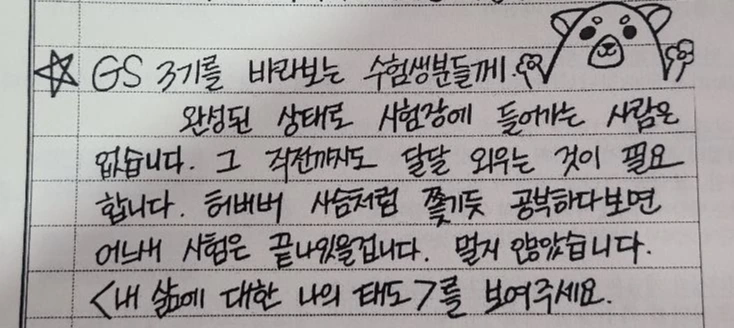 ☆ GS 3기를 바라보는 수험생분들께.
완성된 상태로 시험장에 들어가는 사람은
없습니다. 그 직전까지도 달달 외우는 것이 필요
합니다. 허버버 사슴처럼 쫓기듯 공부하다보면
어느새 시험은 끝나있을겁니다. 멀지 않았습니다.
<내 삶에 대한 나의 태도>를 보여주세요.